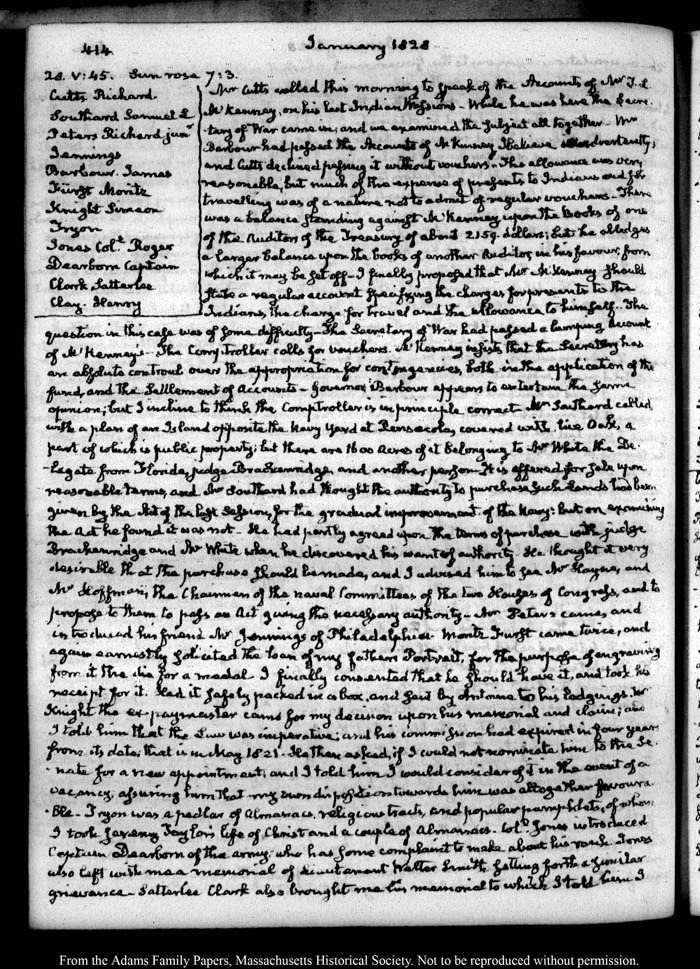 414
January 1828
28. V:45. Sun rose 7:3.
Cutts Richard
Southard Samuel L
Peters Richard junr
Jennings
Barbour. James
Fürst Moritz
Knight Simeon
Tryon
Jones Colt. Roger
Dearborn Captain
Clark Satterlee
Clay. Henry
Mr Cutts called this morning to speak of the Accounts of Mr T. L.
McKenney, on his last Indian Missions. While he was here the Secre-
tary of War came in, and we examined the subject all together. Mr
Barbour had passed the Accounts of McKenney I believe inadvertently,
and Cutts declined passing it without vouchers. The allowance was very
reasonable, but much of the expense of presents to Indians and for
travelling was of a nature not to admit of regular vouchers. There
was a balance standing against McKenney upon the Books of one
of the Auditors of the Treasury of about 2159. dollars; but he alledges
a larger balance upon the books of another Auditor in his favour, from
which it may be set off. I finally proposed that Mr McKenney should
state a regular account specifying the charges for presents to the
Indians, the charge for travel and the allowance to himself. The
question in this case was of some difficulty. The Secretary of War had passed a lumping Account
of McKenney's. The Comptroller calls for vouchers. McKenney insists that the Secretary has
an absolute controul over the appropriation for contingencies, both in the application of the
fund, and the Settlement of Accounts. Governor Barbour appears to entertain the same
opinion; but I incline to think the Comptroller is in principle correct. Mr Southard called
with a plan of an Island opposite the Navy Yard at Pensacola, covered with live Oak, a
part of which is public property; but there are 1600 Acres of it belonging to Mr White the De-
-legate from Florida, judge Brackenridge, and another person. It is offered for sale upon
reasonable terms, and Mr Southard had thought the authority to purchase such Lands had been
given by the Act of the last Session, for the gradual improvement of the Navy: but on examining
the Act he found it was not. He had partly agreed upon the terms of purchase with judge
Brackenridge and Mr White when he discovered his want of authority. He thought it very
desirable that the purchase should be made, and I advised him to see Mr Hayne, and
Mr Hoffman, the Chairmen of the naval Committees of the two Houses of Congress, and to
propose to them to pass an Act giving the necessary authority. Mr Peters came, and
introduced his friend Mr Jennings of Philadelphia. Moritz Furst came twice, and
again earnestly solicited the loan of my father's Portrait, for the purpose of engraving
from it the die for a medal. I finally consented that he should have it, and took his
receipt for it. Had it safely packed in a box, and sent by Antoine to his lodgings. Mr
Knight the ex-paymaster came for my decision upon his memorial and claim; and
I told him that the Law was imperative; and his commission had expired in four years
from its date; that is in May 1821. He then asked, if I could not nominate him to the Se-
-nate for a new appointment, and I told him I would consider of it in the event of a
vacancy, assuring him that my own disposition towards him was altogether favoura-
-ble. Tryon was a pedlar of Almanacs, religious tracts, and popular pamphlets, of whom
I took Jeremy Taylor's life of Christ and a couple of Almanacs. Colt. Jones introduced
Captain Dearborn of the army, who has some complaint to make about his rank. Jones
also left with me a memorial of Lieutenant Walter Smith setting forth a similar
grievance. Satterlee Clark also brought me his memorial to which I told him I
From the Adams Family Papers, Massachusetts Historical Society. Not to be reproduced without permission.